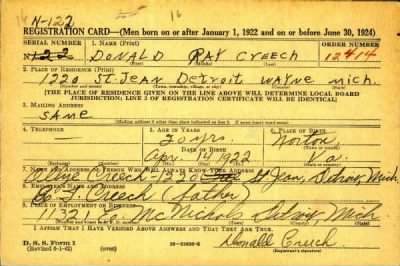 N-122 16
REGISTRATION CARD—(Men born on or after January 1, 1922 and on or before June 30, 1924)
SERIAL NUMBER 1. NAME (Print) ORDER NUMBER
N122 DONALD RAY CREECH 12414
2. PLACE OF RESIDENCE (Print)
1220 St. Jean Detroit Wayne Mich.
(Number and street) (Town, township, village, or city) (County) (State)
[THE PLACE OF RESIDENCE GIVEN ON THE LINE ABOVE WILL DETERMINE LOCAL BOARD
JURISDICTION; LINE 2 OF REGISTRATION CERTIFICATE WILL BE IDENTICAL]
3. MAILING ADDRESS
SAME
[Mailing address if other than place indicated on line 2. If same insert word same]
4. TELEPHONE 5. AGE IN YEARS 6. PLACE OF BIRTH
20 yrs. Norton
DATE OF BIRTH
Apr. 14 1922 Va.
(Mo.) (Day) (Yr.)
7. NAME AND ADDRESS OF PERSON WHO WILL ALWAYS KNOW YOUR ADDRESS
Creech-1220 St Jean, Detroit, Mich
8. EMPLOYER'S NAME AND ADDRESS
Creech (father)
9. PLACE OF EMPLOYMENT OR BUSINESS
11321 McNichols Detroit, Mich
I AFFIRM THAT I HAVE VERIFIED ABOVE ANSWERS AND THAT THEY ARE TRUE.
D. S. S. Form 1
(Revised 6-1-42) (over) Donald Creech
(Registrant's signature)